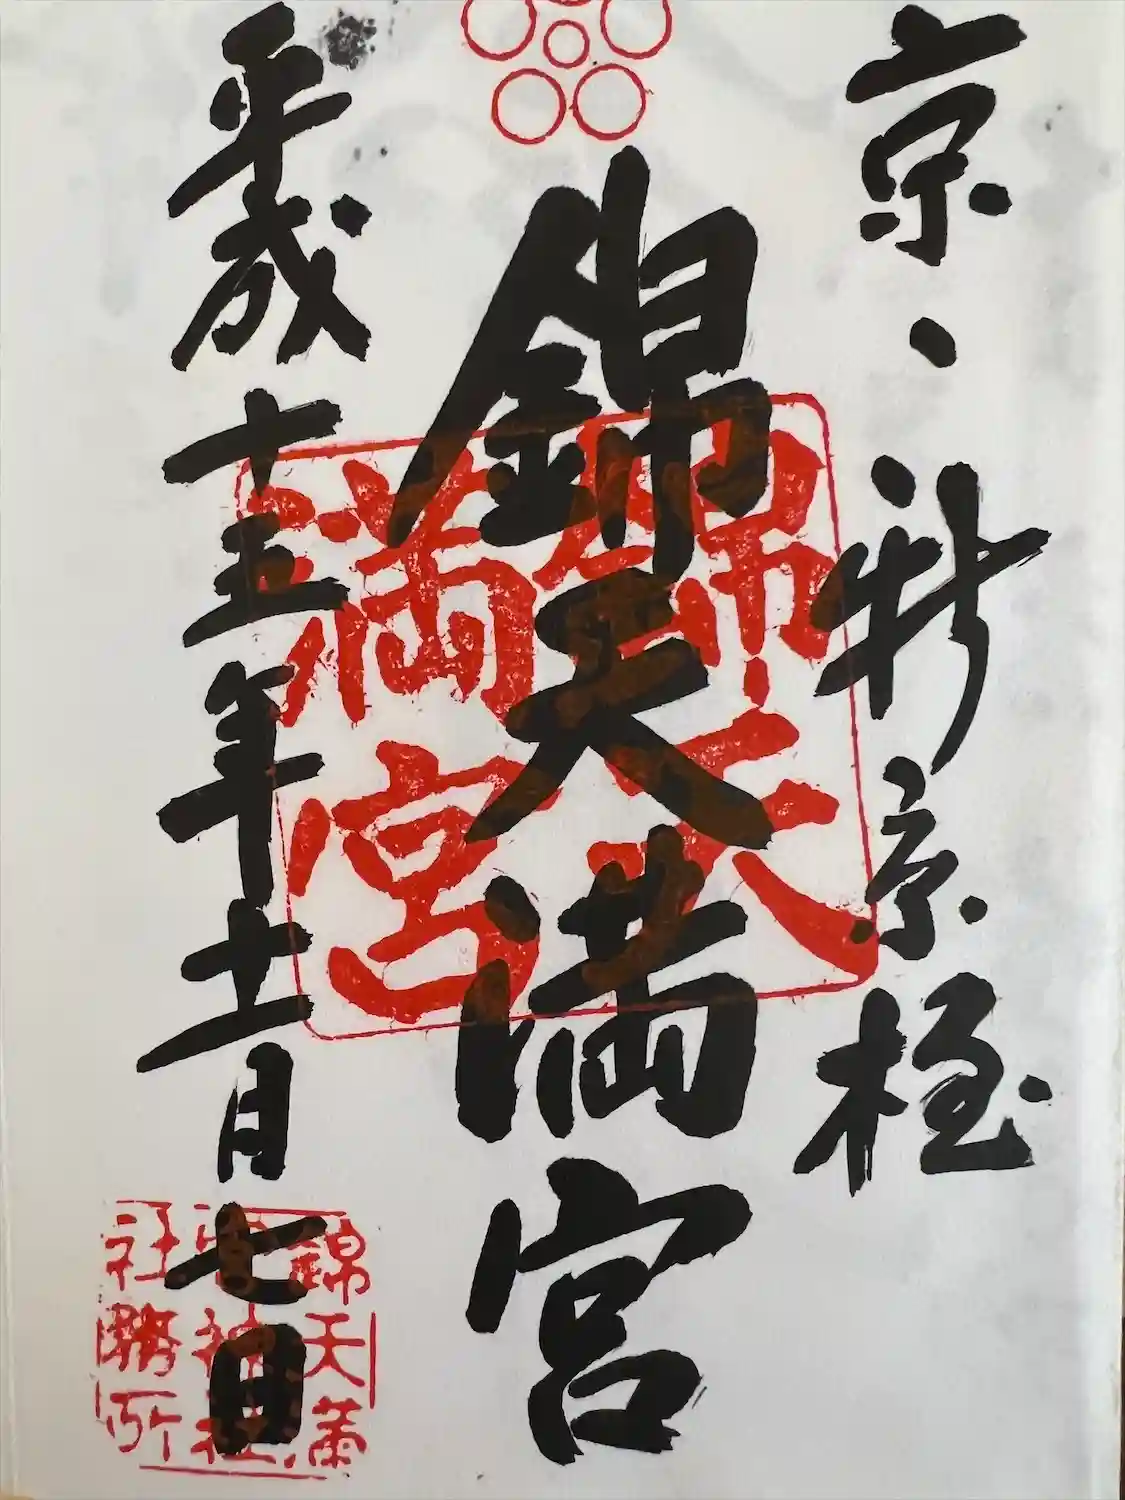 京・新京極
錦天満宮
平成十五年十一月七日
錦天満宮
錦天満
宮神社
社務所